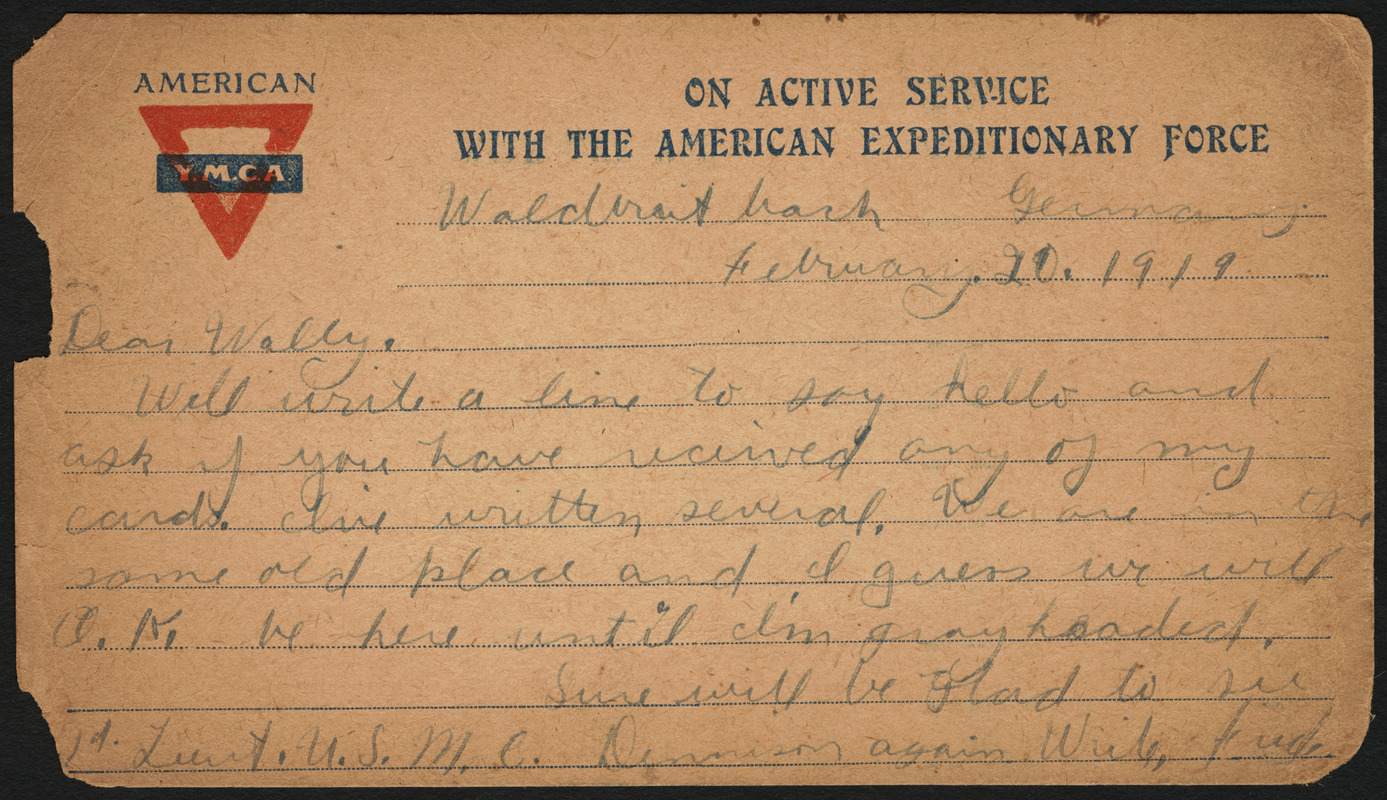 AMERICAN
Y.M.C.A.
ON ACTIVE SERVICE
WITH THE AMERICAN EXPEDITIONARY FORCE
Waldbreitbach Germany
February. 20. 1919
Dear Wally.
Will write a line to say hello and
ask if you have recieved any of my
cards. I've written several. We are in the
same old place and I guess we will
O.K. be here until I'm grayheaded.
Sure will be Glad to see
Lieut. U.S.M.C. Dennison again. Write,